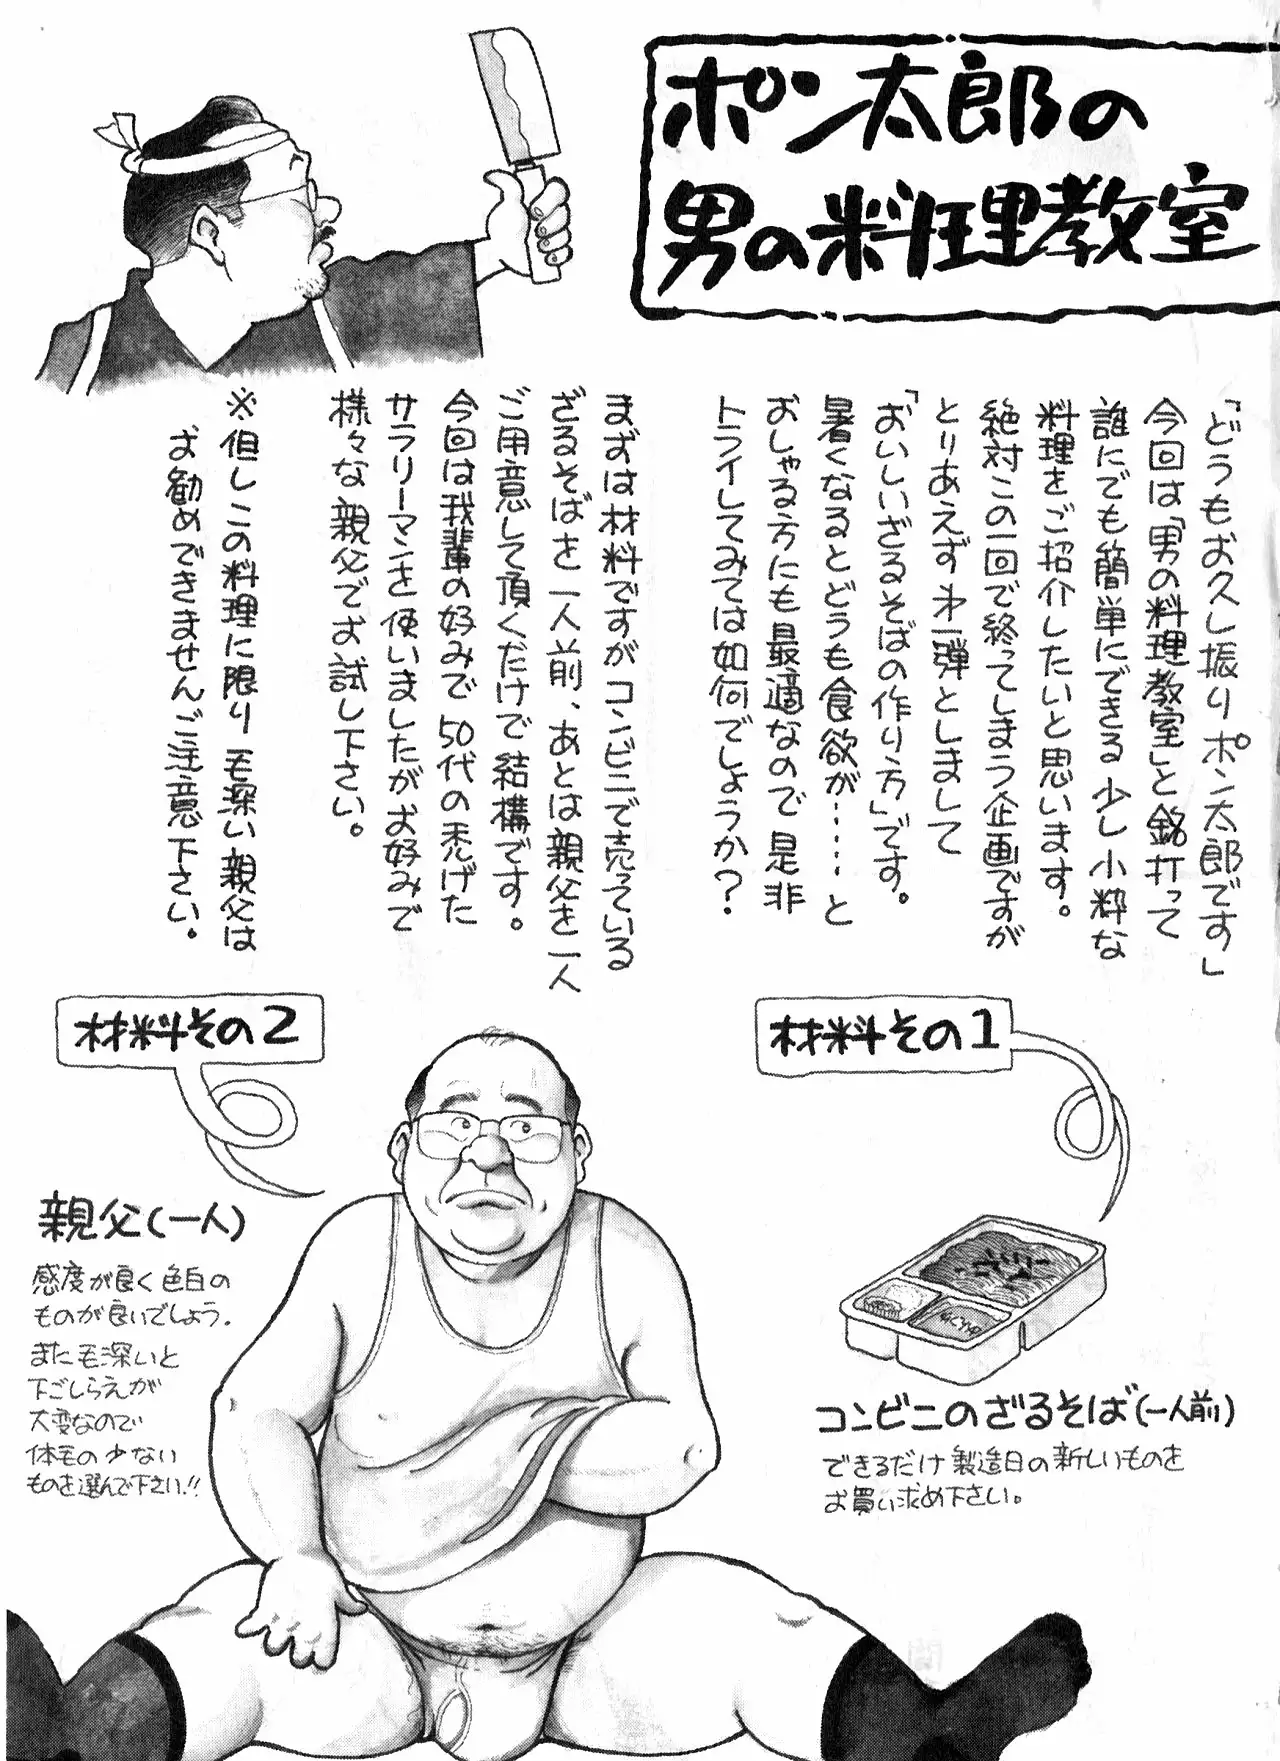 ポン太郎の
男の料理教室
「どうもお久し振りポン太郎です」
今回は「男の料理教室」と銘打って
誰にでも簡単にできる少し小粋な
料理をご紹介したいと思います。
絶対この一回で終ってしまう企画ですが
とりあえず第一弾としまして
「おいしいざるそばの作り方」です。
暑くなるとどうも食欲が……と
おしゃる方にも最適なので是非
トライしてみては如何でしょうか？
まずは材料ですがコンビニで売っている
ざるそばを一人前、あとは親父を一人
ご用意して頂くだけで結構です。
今回は我輩の好みで50代の禿げた
サラリーマンを使いましたがお好みで
様々な親父でお試し下さい。
※但しこの料理に限り毛深い親父は
お勧めできませんご注意下さい。
材料その1
コンビニのざるそば(一人前)
できるだけ製造日の新しいものを
お買い求め下さい。
材料その2
親父(一人)
感度が良く色白の
ものが良いでしょう.
また毛深いと
下ごしらえが
大変なので
体毛の少ない
ものを選んで下さい!!